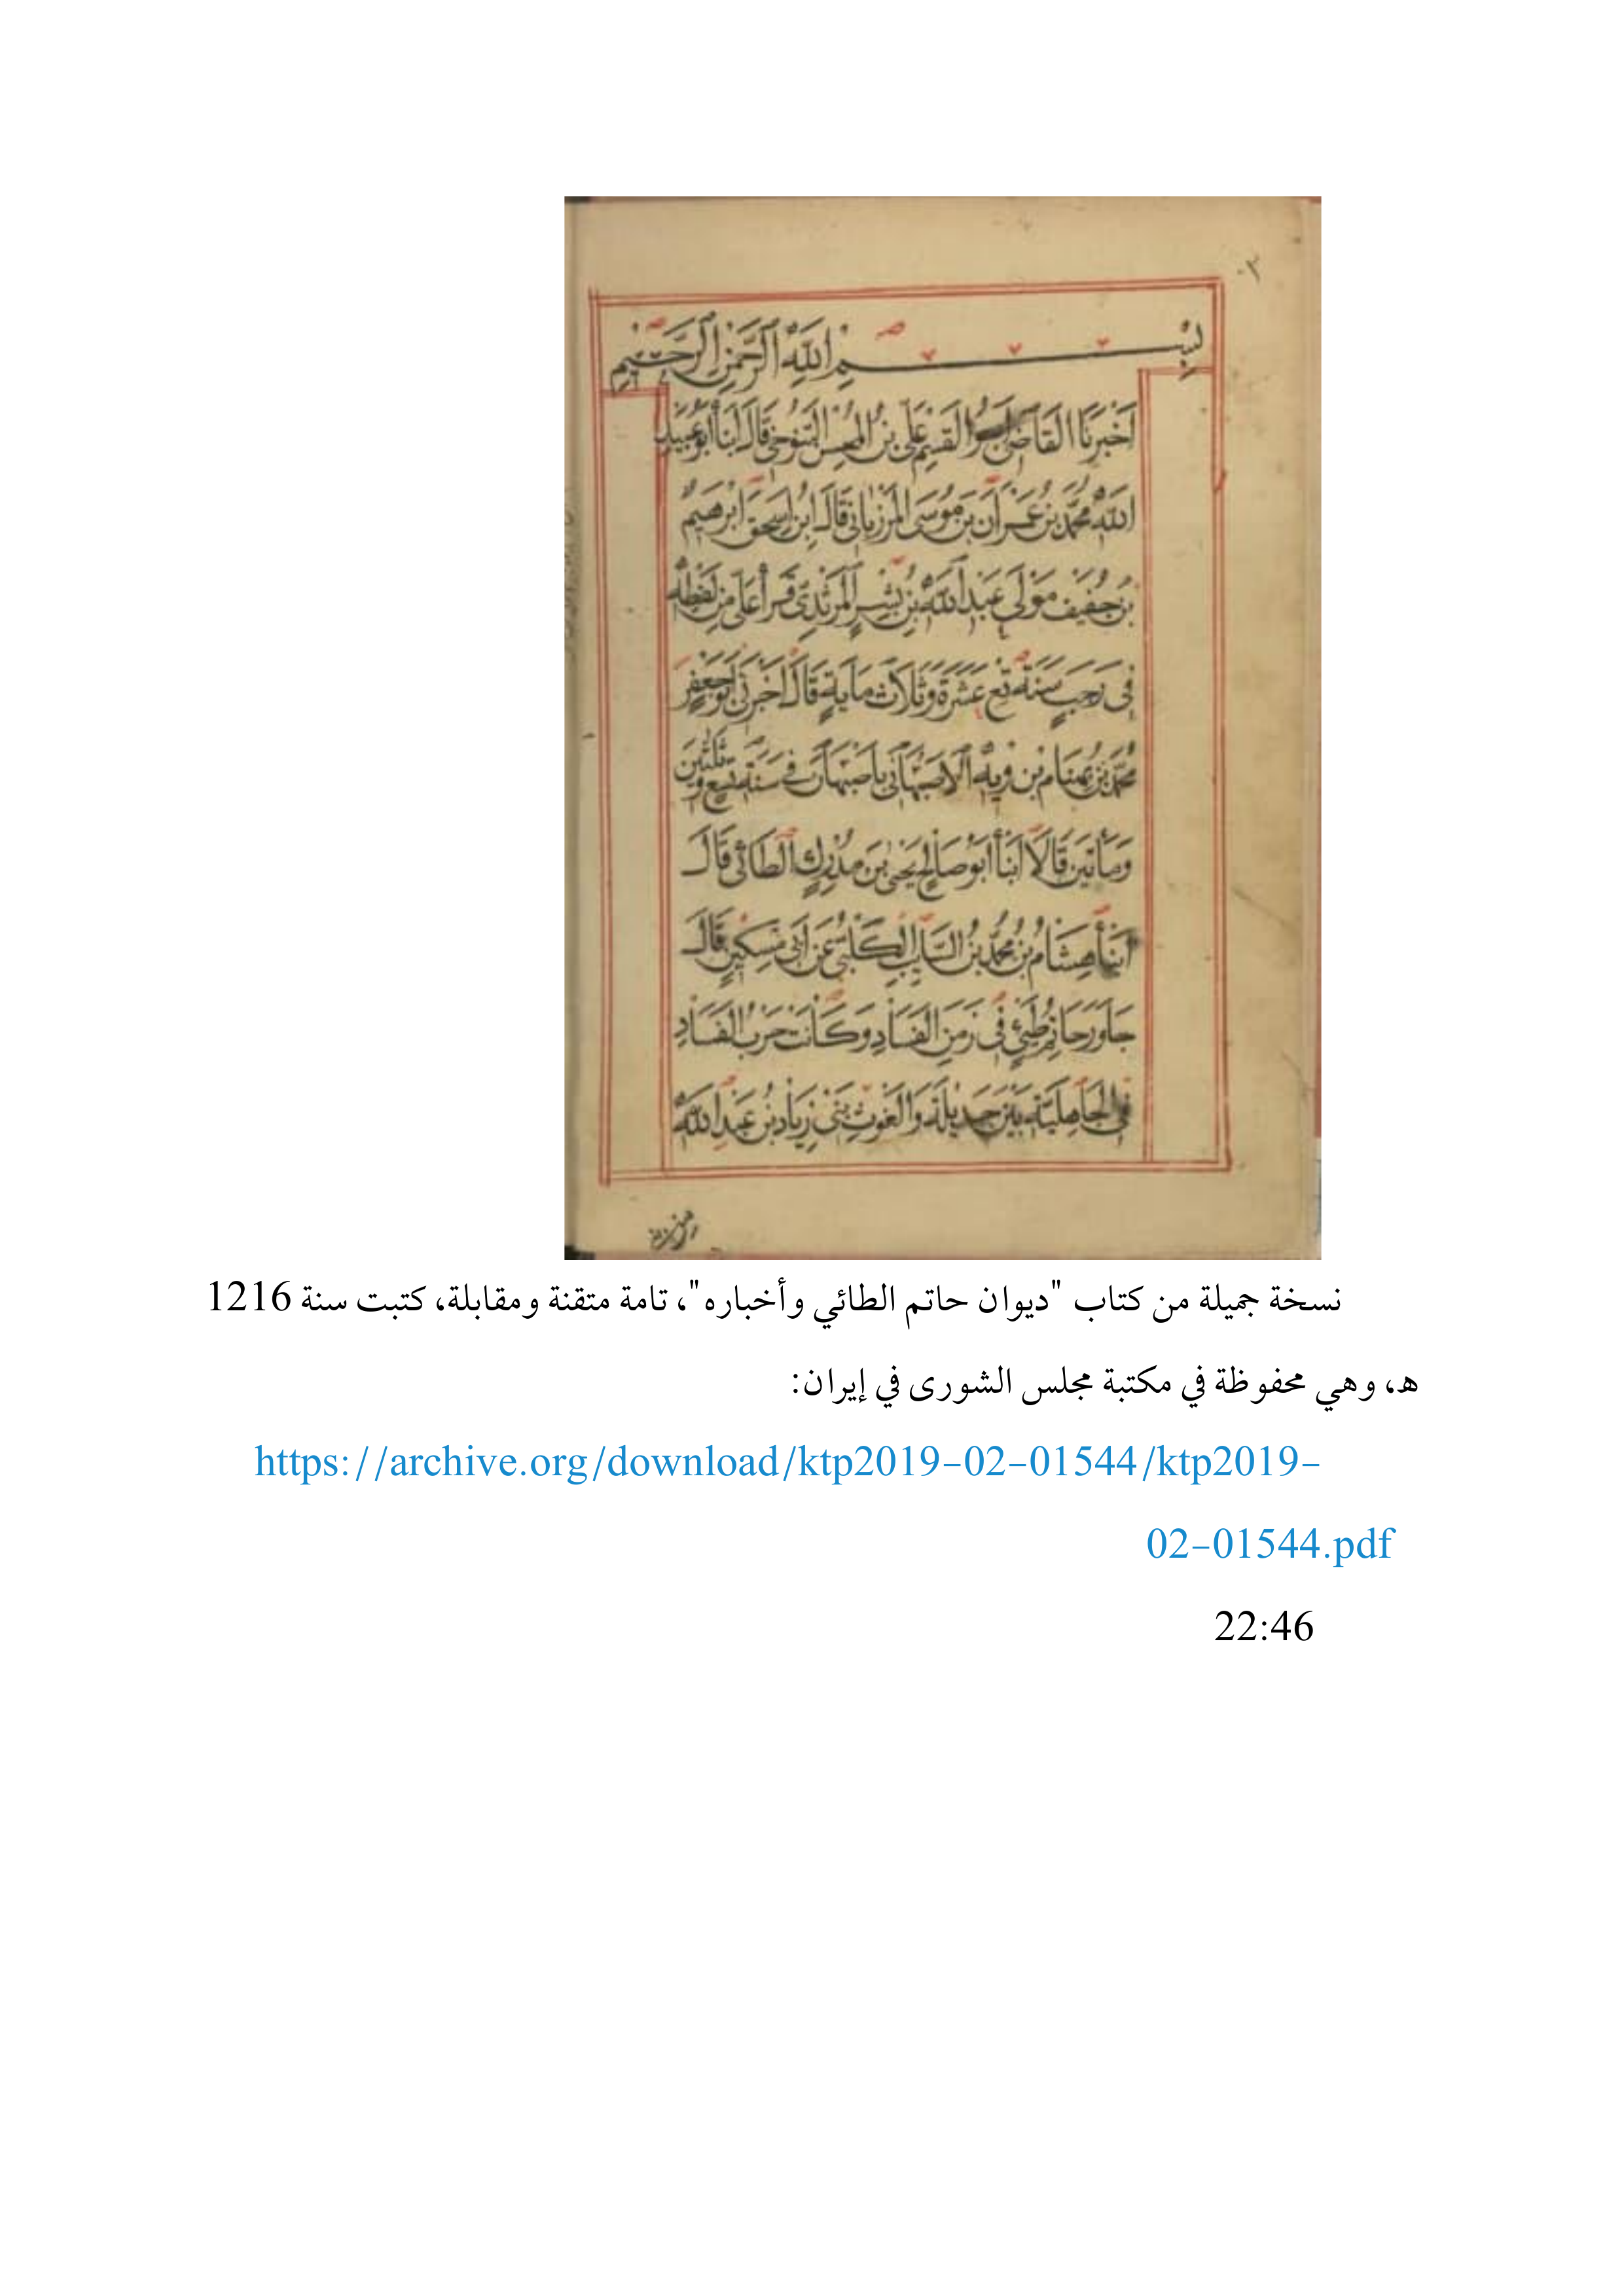 ٣٠
بِسْمِ اللهِ الرَّحْمٰنِ الرَّحِيْمِ
اَخْبَرَنَا القَاضِىُ اَبُو القٰسِمِ عَلِىّ بنُ المُحسِن التَنُوخِىُ قَالَ اَنبَأ اَبُوعُبَيْد
اللهِ مُحَمَّد بن عُمرَان بن مُوسَى المَرزبَانى قَالَ ابن اسحٰق ابرهيم
بن خفيف مَوْلَى عَبداللهِ بن بِشرٍ المَرثَدِىّ قَرأ عَلَىَّ مِن لَفْظِهِ
فِى رَجَبٍ سَنَة تِسع عَشَرَة وَثَلاَث مَايةٍ قَالَ اخبرَنِى اَبُوجَعفر
مُحَمَّد بن الاصبَهانِى باصبَهَان فى سَنَة تسع وثَلٰثِينَ
وَمَأتَين قَالَ اَنبَأ ابوصَالِح يَحيٰى بن مُدرِكٍ الطَائى قَالَ
اَنبَأ هِشَامُ بنُ مُحَمَّد بنُ السَّايبِ الكَلبِىّ عَن اَبِى مِسكِينٍ قَالَ
جَاوَرَ حَاتِمُ طَيّئٍ فِى زَمَنِ الفَسَادِ وَكَانَت حَرْبُ الفَسَادِ
فى الجَاهِلِيَّةِ بَيْنَ جَدِيلَةَ وَالغَوْثِ بَنِى زِيَاد بنُ عَبداللهِ
نسخة جميلة من كتاب "ديوان حاتم الطائي وأخباره"، تامة متقنة ومقابلة، كتبت سنة 1216
هـ، وهي محفوظة في مكتبة مجلس الشورى في إيران:
https://archive.org/download/ktp2019-02-01544/ktp2019-
02-01544.pdf
22:46